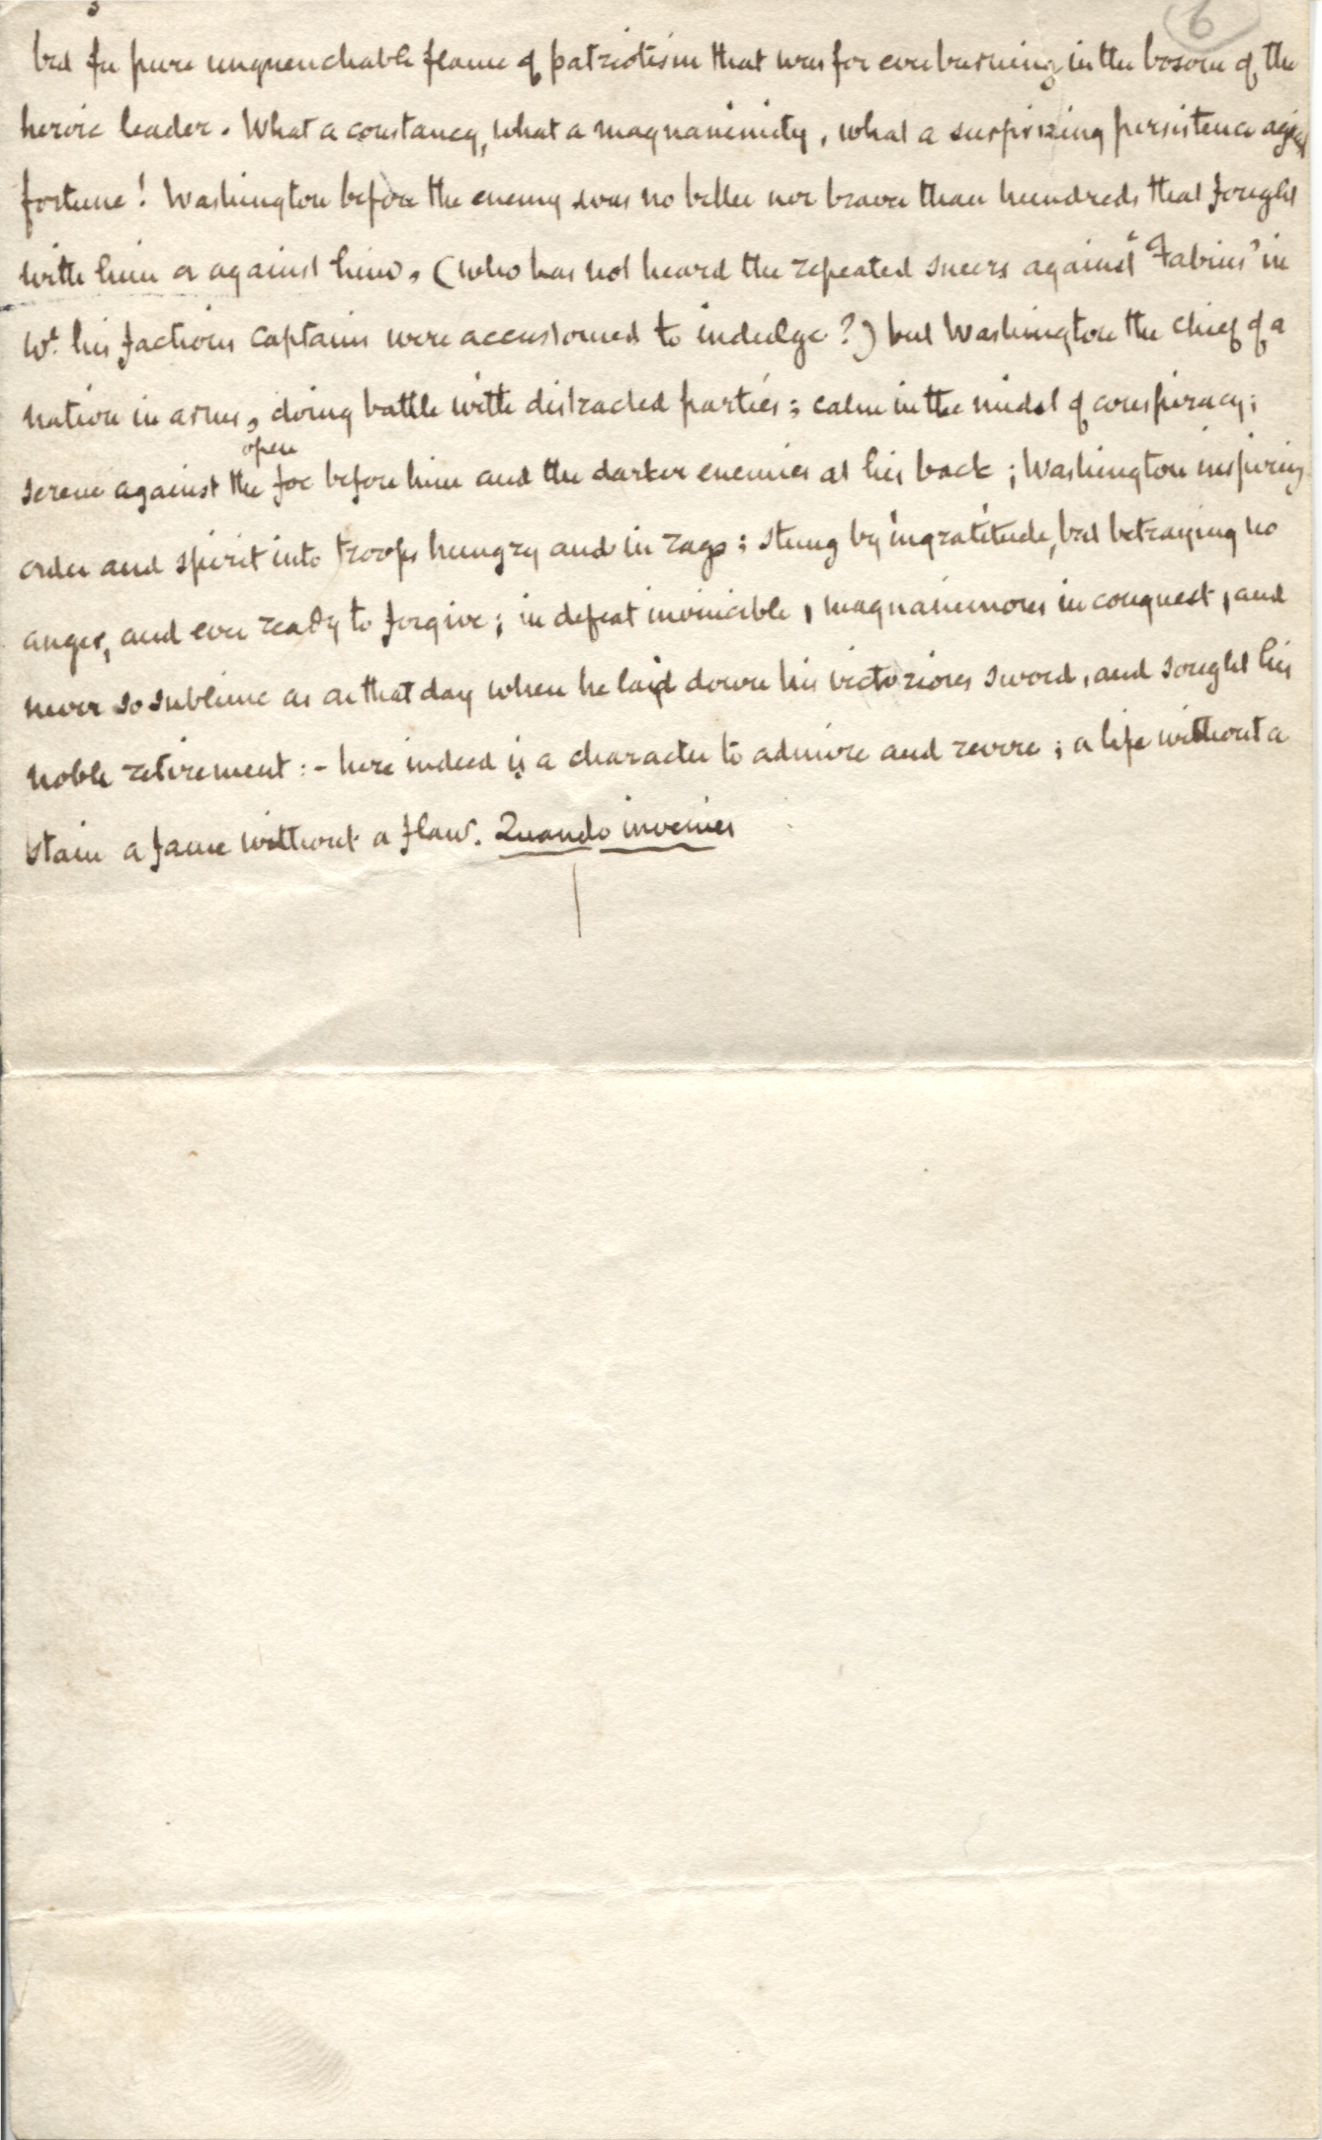 6
but for pure unquenchable flame of patriotism that was for ever burning in the bosom of the
heroic leader. What a constancy, what a magnanimity, what a surprizing persistence agst
fortune! Washington before the enemy was no better nor braver than hundreds that fought
with him or against him. (who has not heard the repeated sneers against 'Fabius' in
wh. his factious captains were accustomed to indulge?) but Washington the chief of a
nation in arms, doing battle with distracted parties; calm in the midst of conspiracy;
open
serene against the foe before him and the darker enemies at his back; Washington inspiring
order and spirit into troops hungry and in rags; stung by ingratitude, but betraying no
anger, and ever ready to forgive; in defeat invincible, magnanimous in conquest, and
never so sublime as on that day when he laid down his victorious sword, and sought his
noble retirement: - here indeed is a character to admire and revere; a life without a
stain a fame without a flaw. Quando invenies